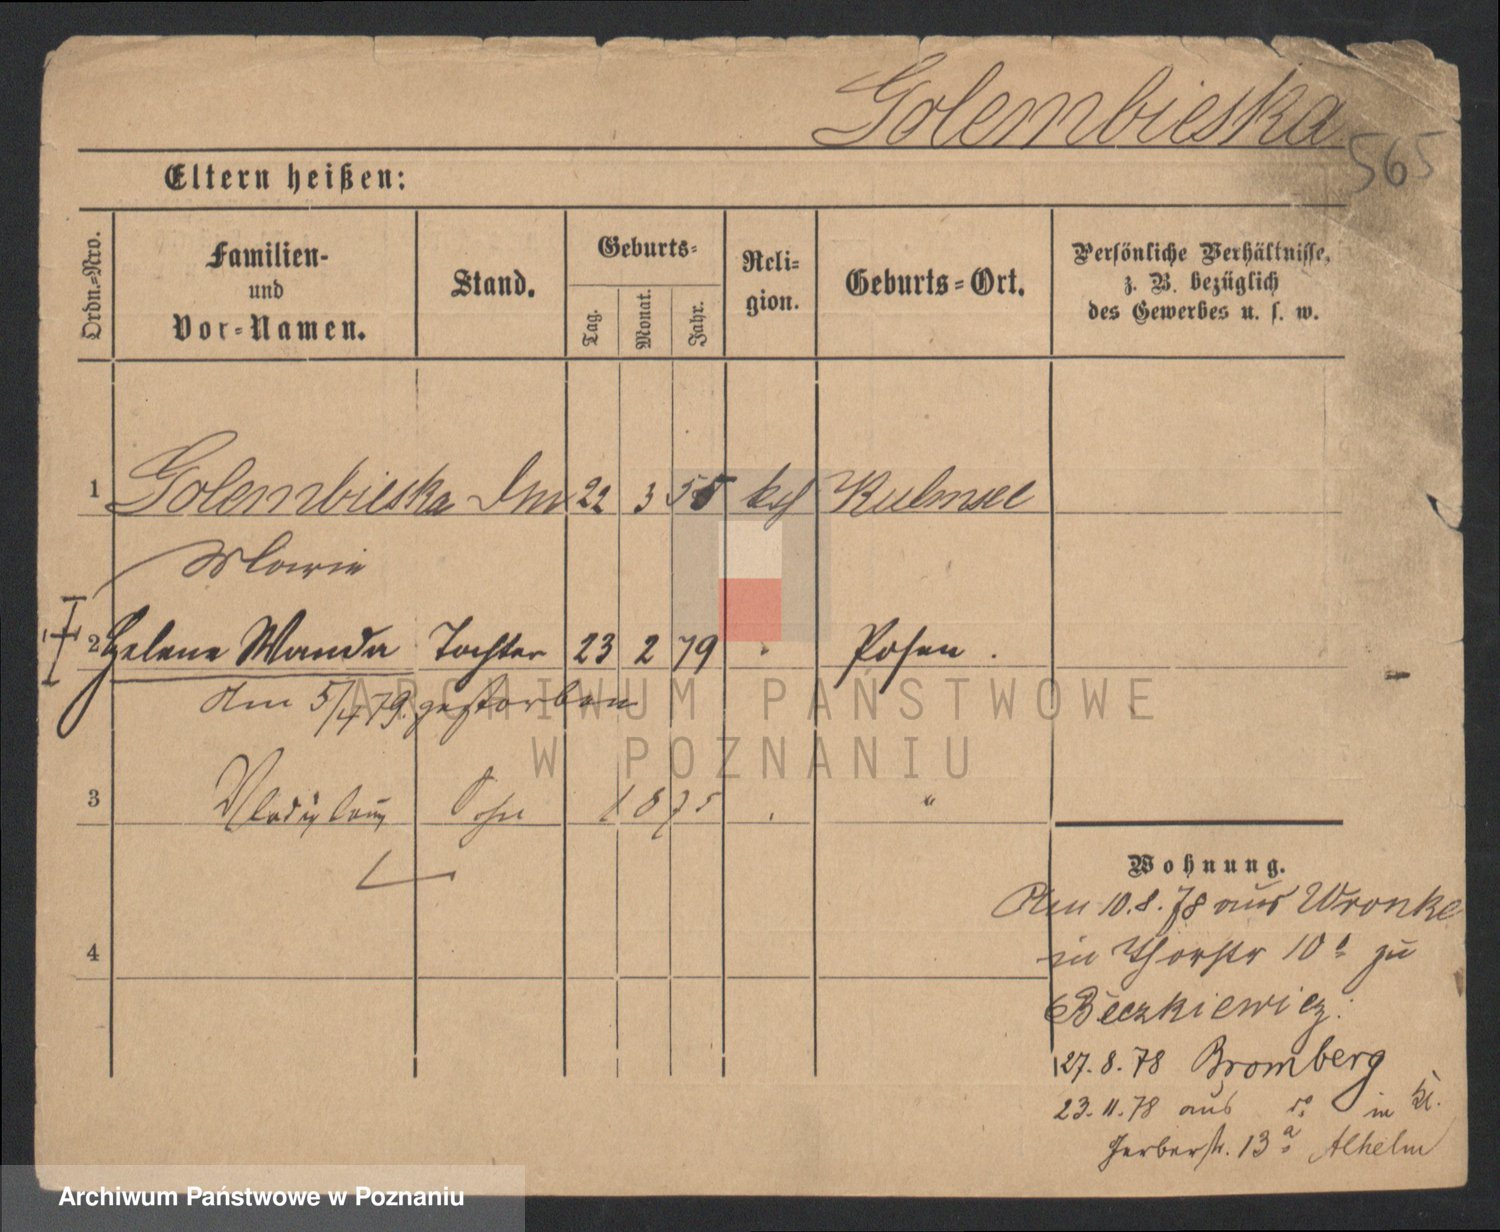 Golembieska
565
Eltern heißen:
Ordn.-Nro.
Familien- und Vor-Namen.
Stand.
Geburts-
Tag.
Monat.
Jahr.
Reli-
gion.
Geburts-Ort.
Persönliche Verhältnisse,
z. B. bezüglich
des Gewerbes u. s. w.
1 Golembieska 22 3 55 kath Kulmsee
Marie
2 Helene Wanda Tochter 23 2 79 Posen.
Am 5/4 79. gestorben
3 Vladislaus Sohn 1875 "
4
Wohnung.
Am 10.8.78 aus Wronke
in Thorstr 10a zu
Beczkiewicz.
27.8.78 Bromberg
23.11.78 aus do in Kl.
Gerberstr. 13a Alhelm
ARCHIWUM PAŃSTWOWE
W POZNANIU
Archiwum Państwowe w Poznaniu